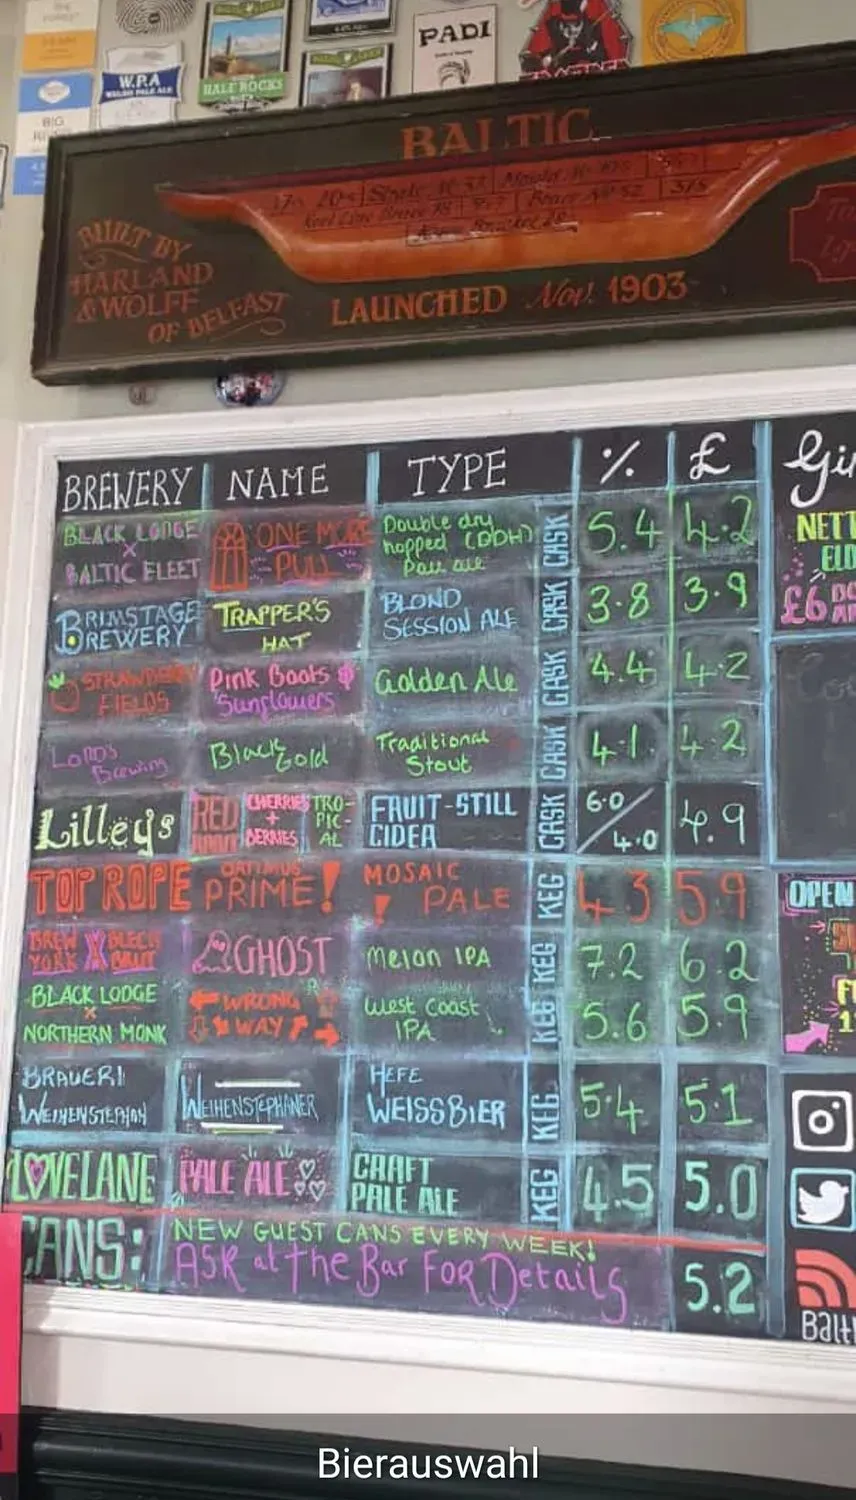 W.P.A
WELSH PALE ALE
HALE ROCKS
PADI
BIG
BALTIC
BUILT BY
HARLAND
& WOLFF
OF BELFAST
LAUNCHED Nov! 1903
BREWERY NAME TYPE % £
BLACK LODGE
X
BALTIC FLEET
ONE MORE
PULL
Double dry
hopped (DDH)
Pale ale
CASK
5.4 4.2
BRIMSTAGE
BREWERY
TRAPPER'S
HAT
BLOND
SESSION ALE
CASK
3.8 3.9
STRAWBERRY
FIELDS
Pink Boots
Sunflowers
Golden Ale
CASK
4.4 4.2
LORDS
Brewing
Black Gold
Traditional
Stout
CASK
4.1 4.2
Lilleys
RED
CHERRIES
+
BERRIES
TRO-
PIC-
AL
FRUIT-STILL
CIDEA
CASK
6.0/4.0
4.9
TOP ROPE
OPTIMUS
PRIME!
MOSAIC
! PALE
KEG
4.3 5.9
BREW
YORK
X
BLECH
BRUT
GHOST
Melon IPA
KEG
7.2 6.2
BLACK LODGE
X
NORTHERN MONK
WRONG
WAY
West Coast
IPA
KEG
5.6 5.9
BRAUERI
WEIHENSTEPHAN
WEIHENSTEPHANER
HEFE
WEISSBIER
KEG
5.4 5.1
LOVELANE
PALE ALE
CRAFT
PALE ALE
KEG
4.5 5.0
CANS:
NEW GUEST CANS EVERY WEEK!
ASK at the Bar FOR Details
5.2
Gin
NETT
ELD
£6
OPEN
Balti
Bierauswahl